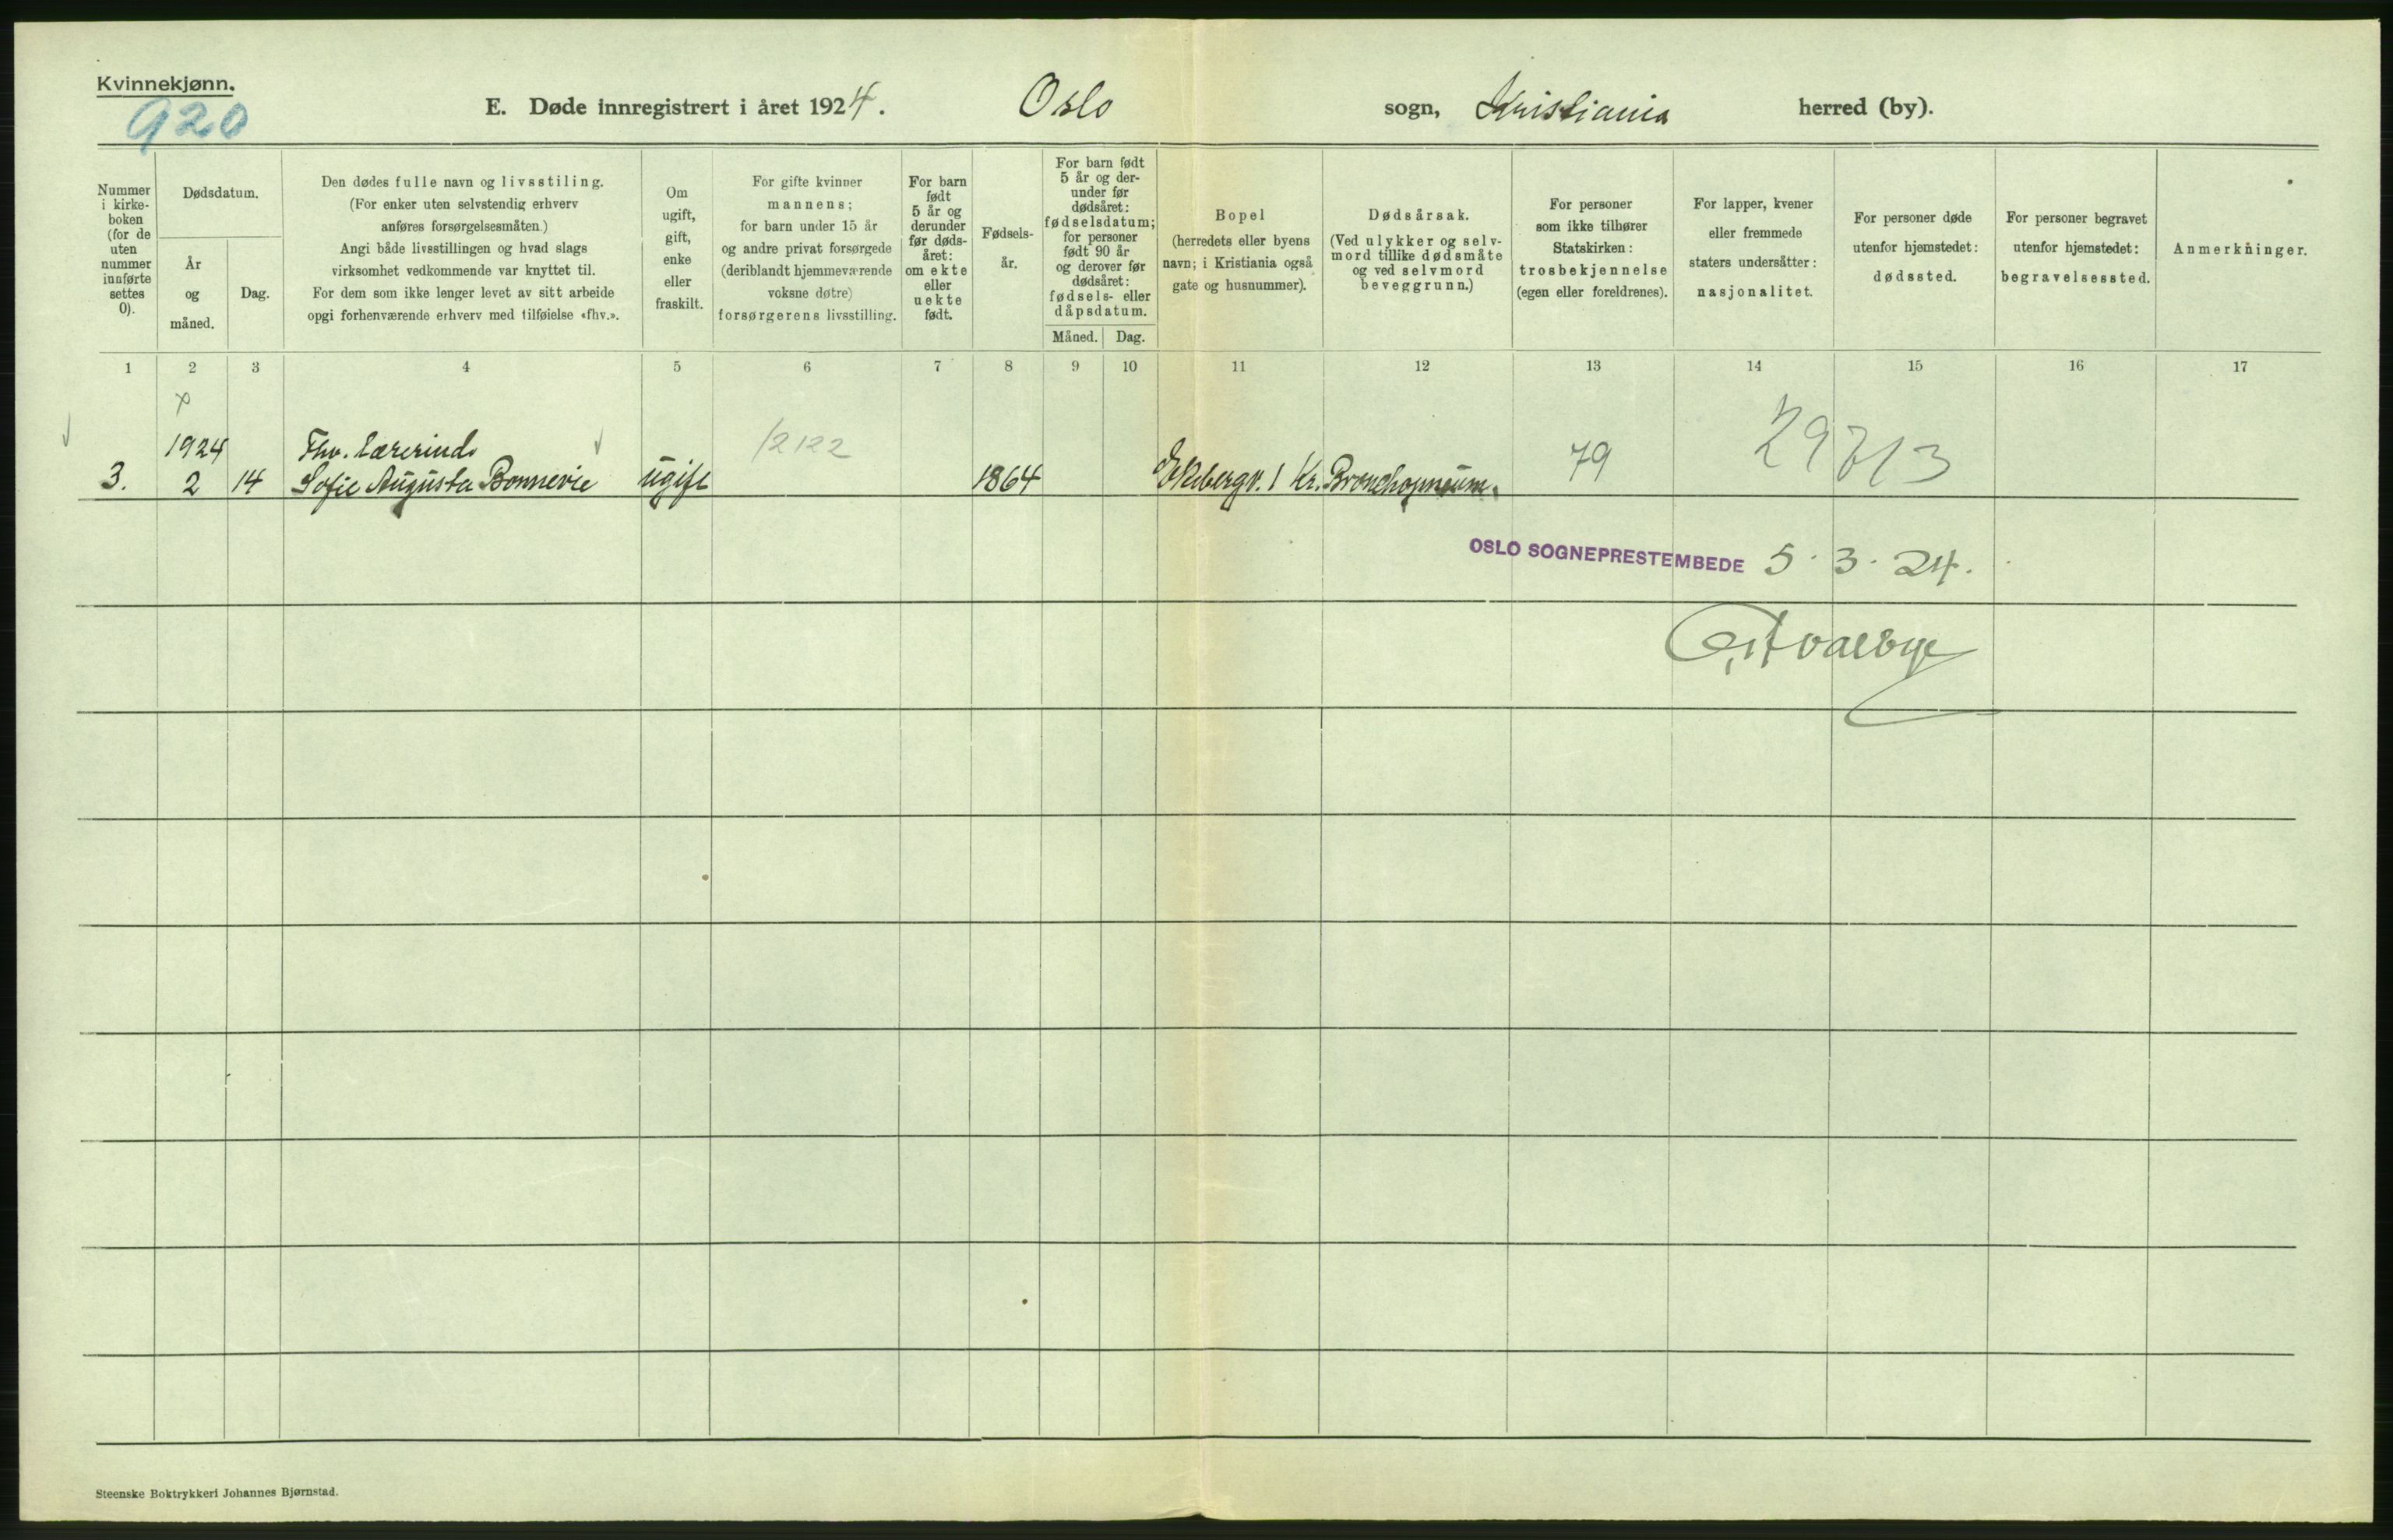 Kvinnekjønn.
920
E. Døde innregistrert i året 1924. Oslo sogn, Kristiania herred (by).
Nummer
i kirke-
boken
(for de
uten
nummer
innførte
settes
0).
Dødsdatum.
År
og
måned.
Dag.
Den dødes fulle navn og livsstiling.
(For enker uten selvstendig erhverv
anføres forsørgelsesmåten.)
Angi både livsstillingen og hvad slags
virksomhet vedkommende var knyttet til.
For dem som ikke lenger levet av sitt arbeide
opgi forhenværende erhverv med tilføielse «fhv.».
Om
ugift,
gift,
enke
eller
fraskilt.
For gifte kvinner
mannens;
for barn under 15 år
og andre privat forsørgede
(deriblandt hjemmeværende
voksne døtre)
forsørgerens livsstilling.
For barn
født
5 år og
derunder
før døds-
året:
om ekte
eller
uekte
født.
Fødsels-
år.
For barn født
5 år og der-
under før
dødsåret:
fødselsdatum;
for personer
født 90 år
og derover før
dødsåret:
fødsels- eller
dåpsdatum.
Måned. Dag.
Bopel
(herredets eller byens
navn; i Kristiania også
gate og husnummer).
Dødsårsak.
(Ved ulykker og selv-
mord tillike dødsmåte
og ved selvmord
beveggrunn.)
For personer
som ikke tilhører
Statskirken:
trosbekjennelse
(egen eller foreldrenes).
For lapper, kvener
eller fremmede
staters undersåtter:
nasjonalitet.
For personer døde
utenfor hjemstedet:
dødssted.
For personer begravet
utenfor hjemstedet:
begravelsessted.
Anmerkninger.
1 2 3 4 5 6 7 8 9 10 11 12 13 14 15 16 17
1924 Fhv. Lærerinde 12122
3. 2 14 Sofie Augusta Bonnevie ugift 1864 Ekebergv. 1 Kr. Bronchopneum. 79
OSLO SOGNEPRESTEMBEDE 5.3.24.
Steenske Boktrykkeri Johannes Bjørnstad.